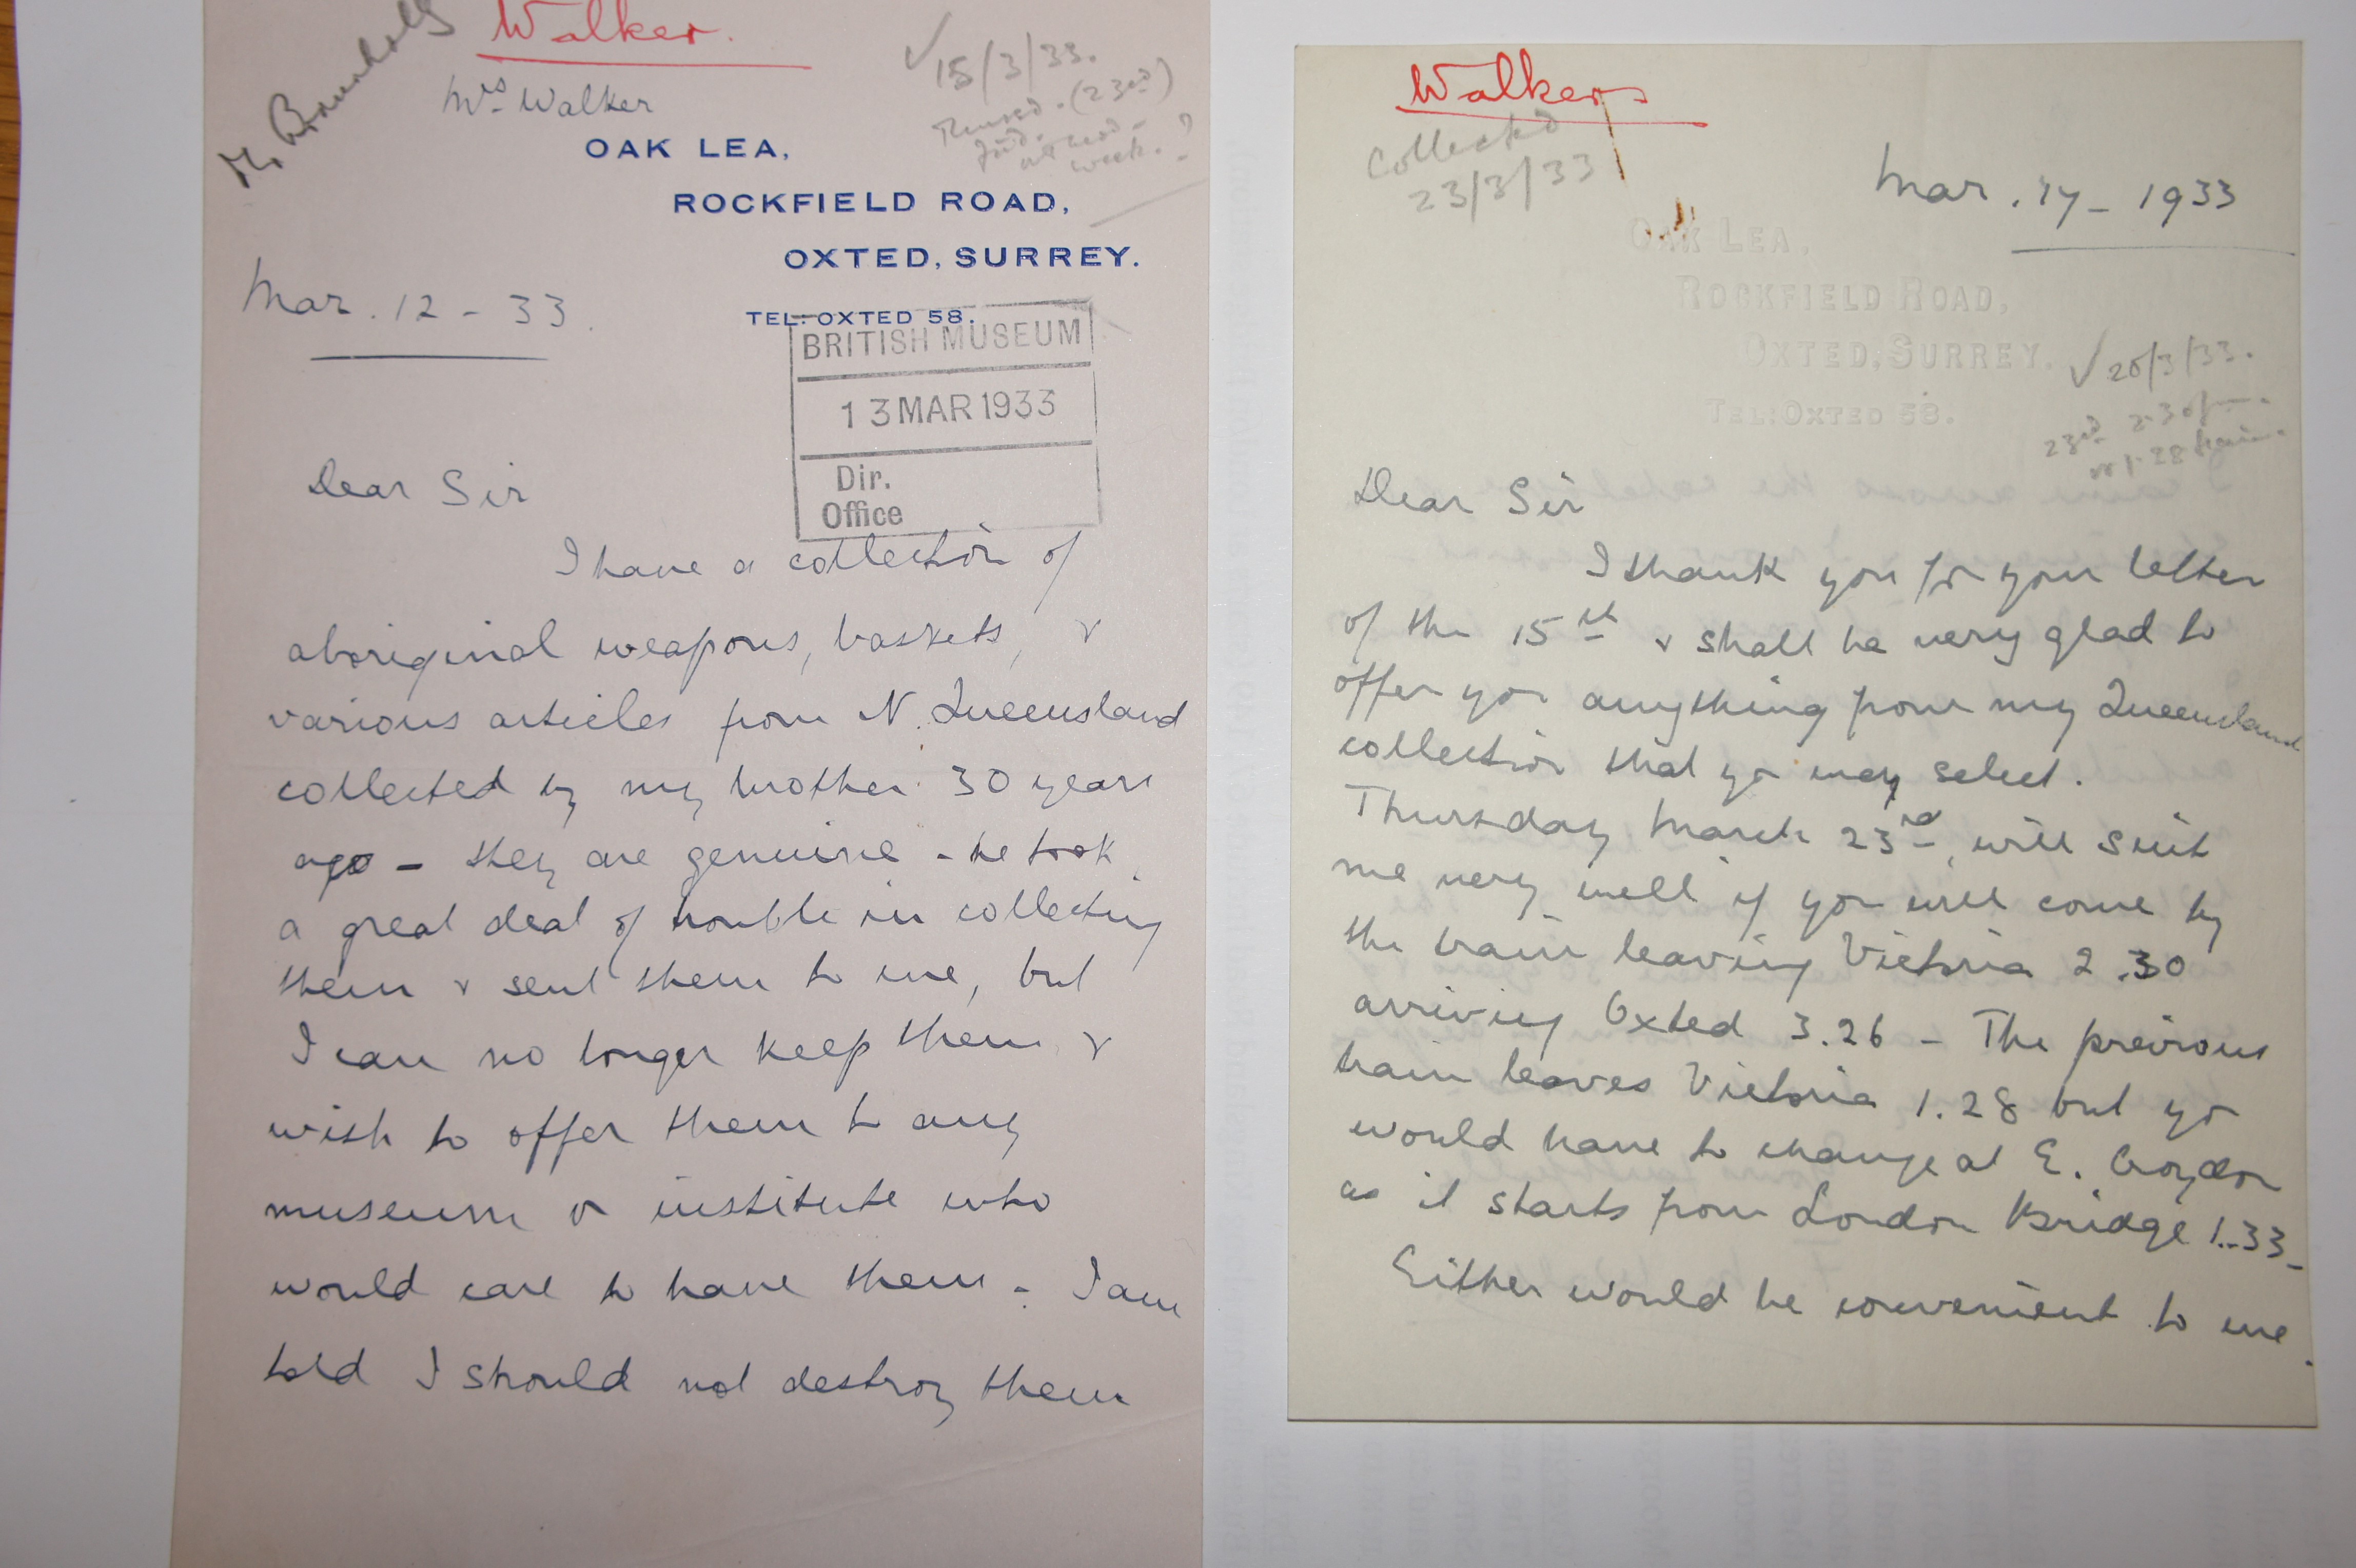 Walker.
Mrs Walker
15/3/33.
OAK LEA,
ROCKFIELD ROAD,
OXTED, SURREY.
TEL: OXTED 58.
Mar. 12 - 33.
BRITISH MUSEUM
13 MAR 1933
Dir.
Office
Dear Sir
I have a collection of
aboriginal weapons, baskets, &
various articles from N. Queensland
collected by my brother 30 years
ago - they are genuine - he took
a great deal of trouble in collecting
them & sent them to me, but
I can no longer keep them &
wish to offer them to any
museum or institute who
would care to have them - I am
told I should not destroy them
Walker
Collected
23/3/33
Mar. 17 - 1933
OAK LEA,
ROCKFIELD ROAD,
OXTED, SURREY.
TEL: OXTED 58.
20/3/33.
23rd 2.30
or 1.28 train.
Dear Sir
I thank you for your letter
of the 15th & shall be very glad to
offer you anything from my Queensland
collection that you may select.
Thursday March 23rd, will suit
me very well if you will come by
the train leaving Victoria 2.30
arriving Oxted 3.26 - The previous
train leaves Victoria 1.28 but you
would have to change at E. Croydon
as it starts from London Bridge 1.33 -
Either would be convenient to me.